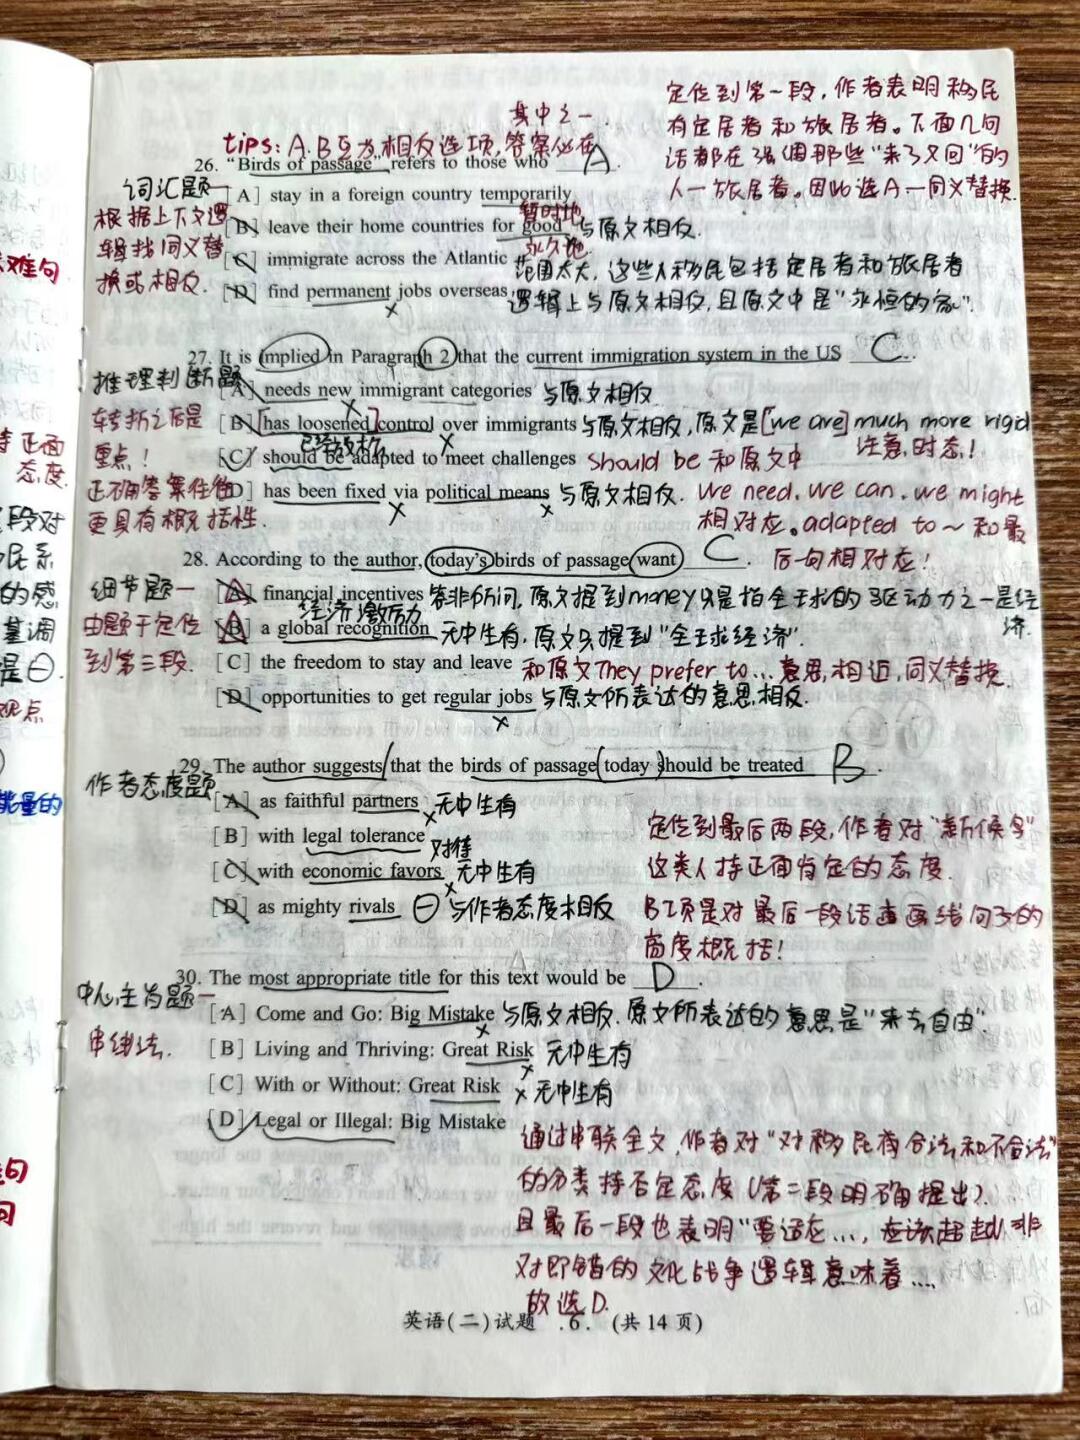 定位到第一段,作者表明移民
有定居者和旅居者。下面几句
话都在强调那些"来了又回"的
人一旅居者。因此选A一同义替换.
其中之一.
tips: A.B互为相反选项,答案必在
26. "Birds of passage" refers to those who A.
词汇题一
[A] stay in a foreign country temporarily
暂时地
根据上下文逻
辑找同义替
换或相反.
[B] leave their home countries for good 与原文相反.
永久地
[C] immigrate across the Atlantic 范围太大,这些人移民包括定居者和旅居者
[D] find permanent jobs overseas. 逻辑上与原文相反,且原文中是"永恒的家".
27. It is implied in Paragraph 2 that the current immigration system in the US C.
推理判断题
转折之后是
重点!
正确答案往往
更具有概括性.
[A] needs new immigrant categories 与原文相反
[B] [has loosened] control over immigrants 与原文相反,原文是[we are] much more rigid
注意时态!
[C] should be adapted to meet challenges should be 和原文中
[D] has been fixed via political means 与原文相反. we need. we can. we might
相对应。adapted to ~ 和最
后一句相对应!
28. According to the author, today's birds of passage want C.
细节题一
由题干定位
到第三段.
[A] financial incentives 答非所问,原文提到money只是指全球的驱动力之一是经
济.
经济激励
[B] a global recognition 无中生有,原文只提到"全球经济".
[C] the freedom to stay and leave 和原文They prefer to... 意思相近,同义替换.
[D] opportunities to get regular jobs 与原文所表达的意思相反.
29. The author suggests that the birds of passage today should be treated B.
作者态度题
[A] as faithful partners 无中生有
[B] with legal tolerance
对待
[C] with economic favors 无中生有
[D] as mighty rivals ⊖与作者态度相反
定位到最后两段,作者对"新候鸟"
这类人持正面肯定的态度.
B项是对最后一段话画线句子的
高度概括!
30. The most appropriate title for this text would be D.
中心主旨题一
串线法.
[A] Come and Go: Big Mistake 与原文相反.原文所表达的意思是"来去自由".
[B] Living and Thriving: Great Risk 无中生有
[C] With or Without: Great Risk 无中生有
[D] Legal or Illegal: Big Mistake
通过串联全文,作者对"对移民符合法和不合法"
的分类持否定态度(第二段明确提出).
且最后一段也表明"要适应...,应该超越非
对即错的文化战争逻辑意味着....
故选D.
英语(二)试题 .6. (共14页)
难句
持正面
态度.
段对
民系
的感
基调
是⊖.
观点
能量的
句
句